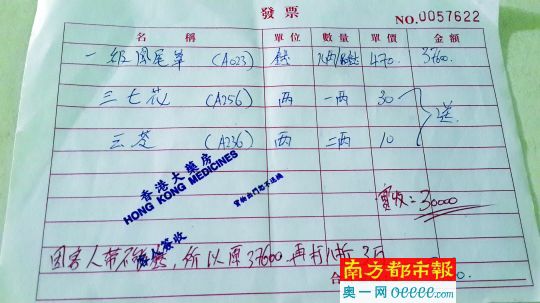 發票
NO.0057622
名 稱 單位 數量 單價 金額
一級鳳尾草 (A023) 錢 470. 37600.
三七花 (A256) 兩 一兩 30
云苓 (A236) 兩 二兩 10
送.
香港大藥房
HONG KONG MEDICINES
貨物出門恕不退換
實收=30000
簽收
因客人帶不夠錢,所以原37600再打八折3万
合
南方都市報
奥一网oeeee.com